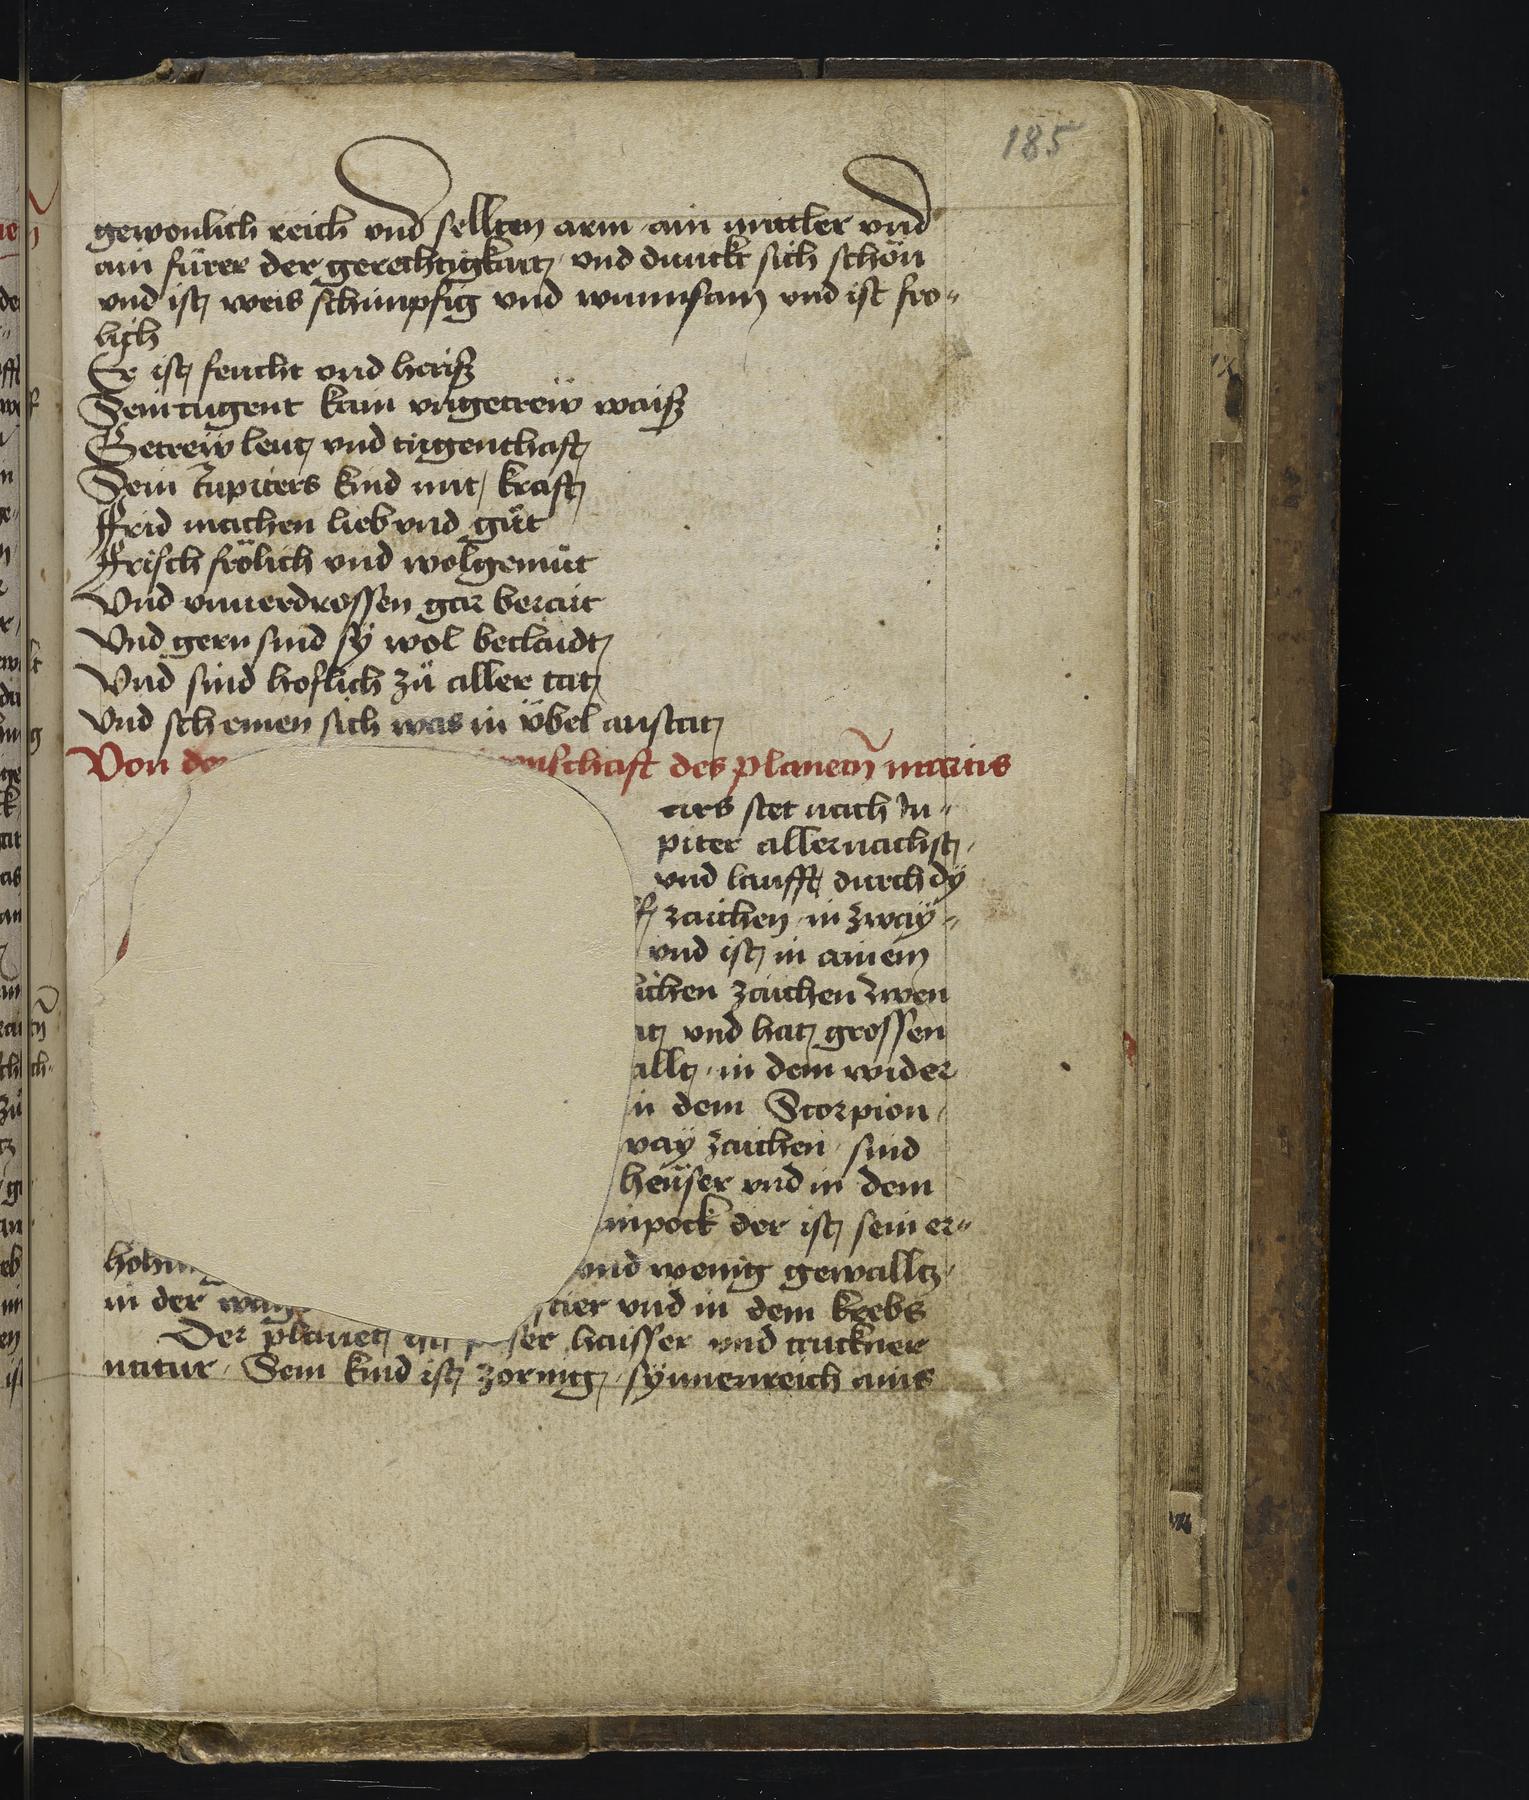 185
gewonlich reich vnd sellten arm ain mitler vnd
ain fürer der gerechtigkait vnd dunckt sich schön
vnd ist weis schimpfig vnd wunnsam vnd ist fro-
lich
Er ist feucht vnd haiß
Sein tugent kain vngetrew waiß
Getrew leut vnd tugenthaft
Sein Jupiters kind mit kraft
Frid machen lieb vnd güt
Frisch frölich vnd wolgemüt
Vnd vnuerdrossen gar berait
Vnd gern sind sÿ wol beclaidt
Vnd sind hoflich zü aller tat
Vnd schemen sich was in übel anstat
Von de enschaft des planetn martis
ars stet nach Ju-
piter allernachst
vnd laufft durch dÿ
f zaichen in zwaÿ-
vnd ist in ainem
ichen zaichen zwen
at vnd hat grossen
allt in dem wider
in dem Scorpion
waÿ zaichen sind
heüser vnd in dem
inpock der ist sein er-
hohung vnd wenig gewallt
in der wag stier vnd in dem krebs
Der planet ist ser haisser vnd truckner
natur Sein kind ist zornig sÿnnenreich ains